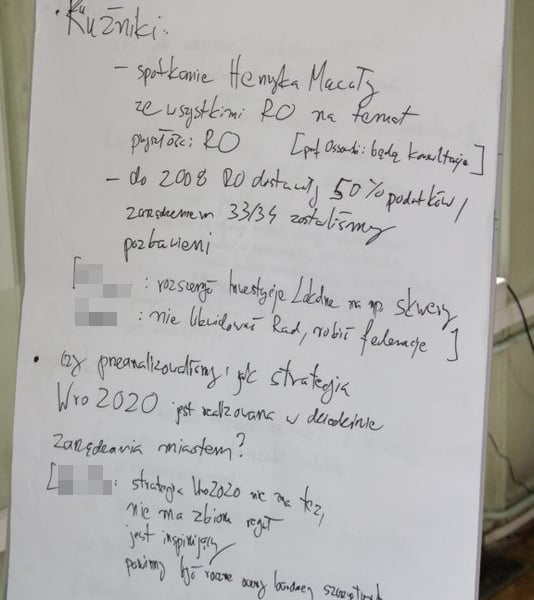 • Kuźniki:
– spotkanie Henryka Macały
ze wszystkimi RO na temat
przyszłości RO [prof Ossowski: będą konsultacje]
– do 2008 RO dostawały 50% podatków/
zarządzeniem 33/34 zostaliśmy
pozbawieni
[ : rozszerzyć Inwestycje Lokalne na np. skwery
: nie likwidować Rad, robić federacje ]
• czy przeanalizowaliśmy, jak strategia
Wro 2020 jest realizowana w dziedzinie
zarządzania miastem?
[ : strategia Wro2020 nie ma tez,
nie ma zbioru reguł
jest inspirujący
powinny być roczne oceny bardziej